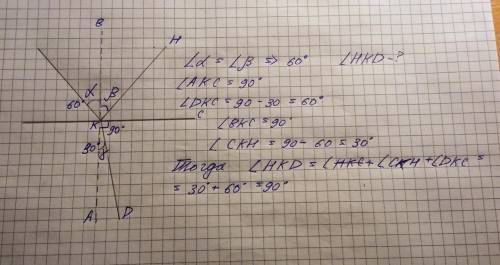 B
H
∠α = ∠β => 60° ∠HKD - ?
α β
60°
∠AKC = 90°
∠DKC = 90 - 30 = 60°
C
K 90°
∠BKC = 90°
30°
∠CKH = 90 - 60 = 30°
Тогда ∠HKD = ∠CKH + ∠DKC =
= 30° + 60° = 90°
A D